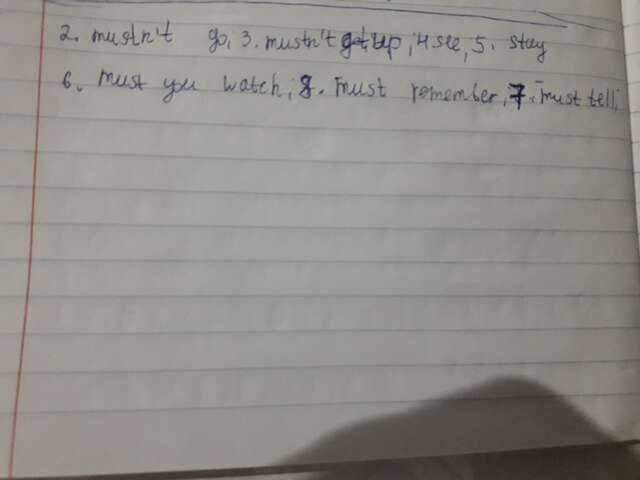 2. mustn't go, 3. mustn't get up, 4 see, 5. stay
6. must you watch, 8. must remember, 7. must tell,